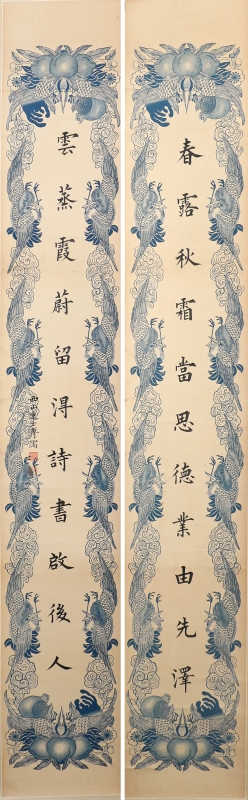 春露秋霜當思德業由先澤
雲蒸霞蔚留得詩書啟後人